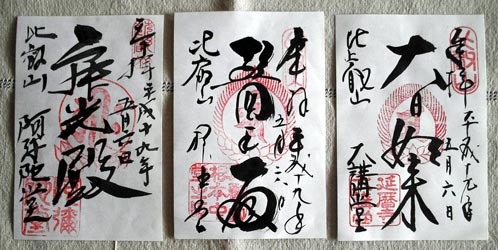 奉拝 平成十九年
五月六日
大日如来
比叡山 大講堂
延暦寺
奉拝 平成十九年
五月六日
醫王殿
比叡山 中堂
奉拝 平成十九年
五月六日
寂光殿
比叡山 阿弥陀堂